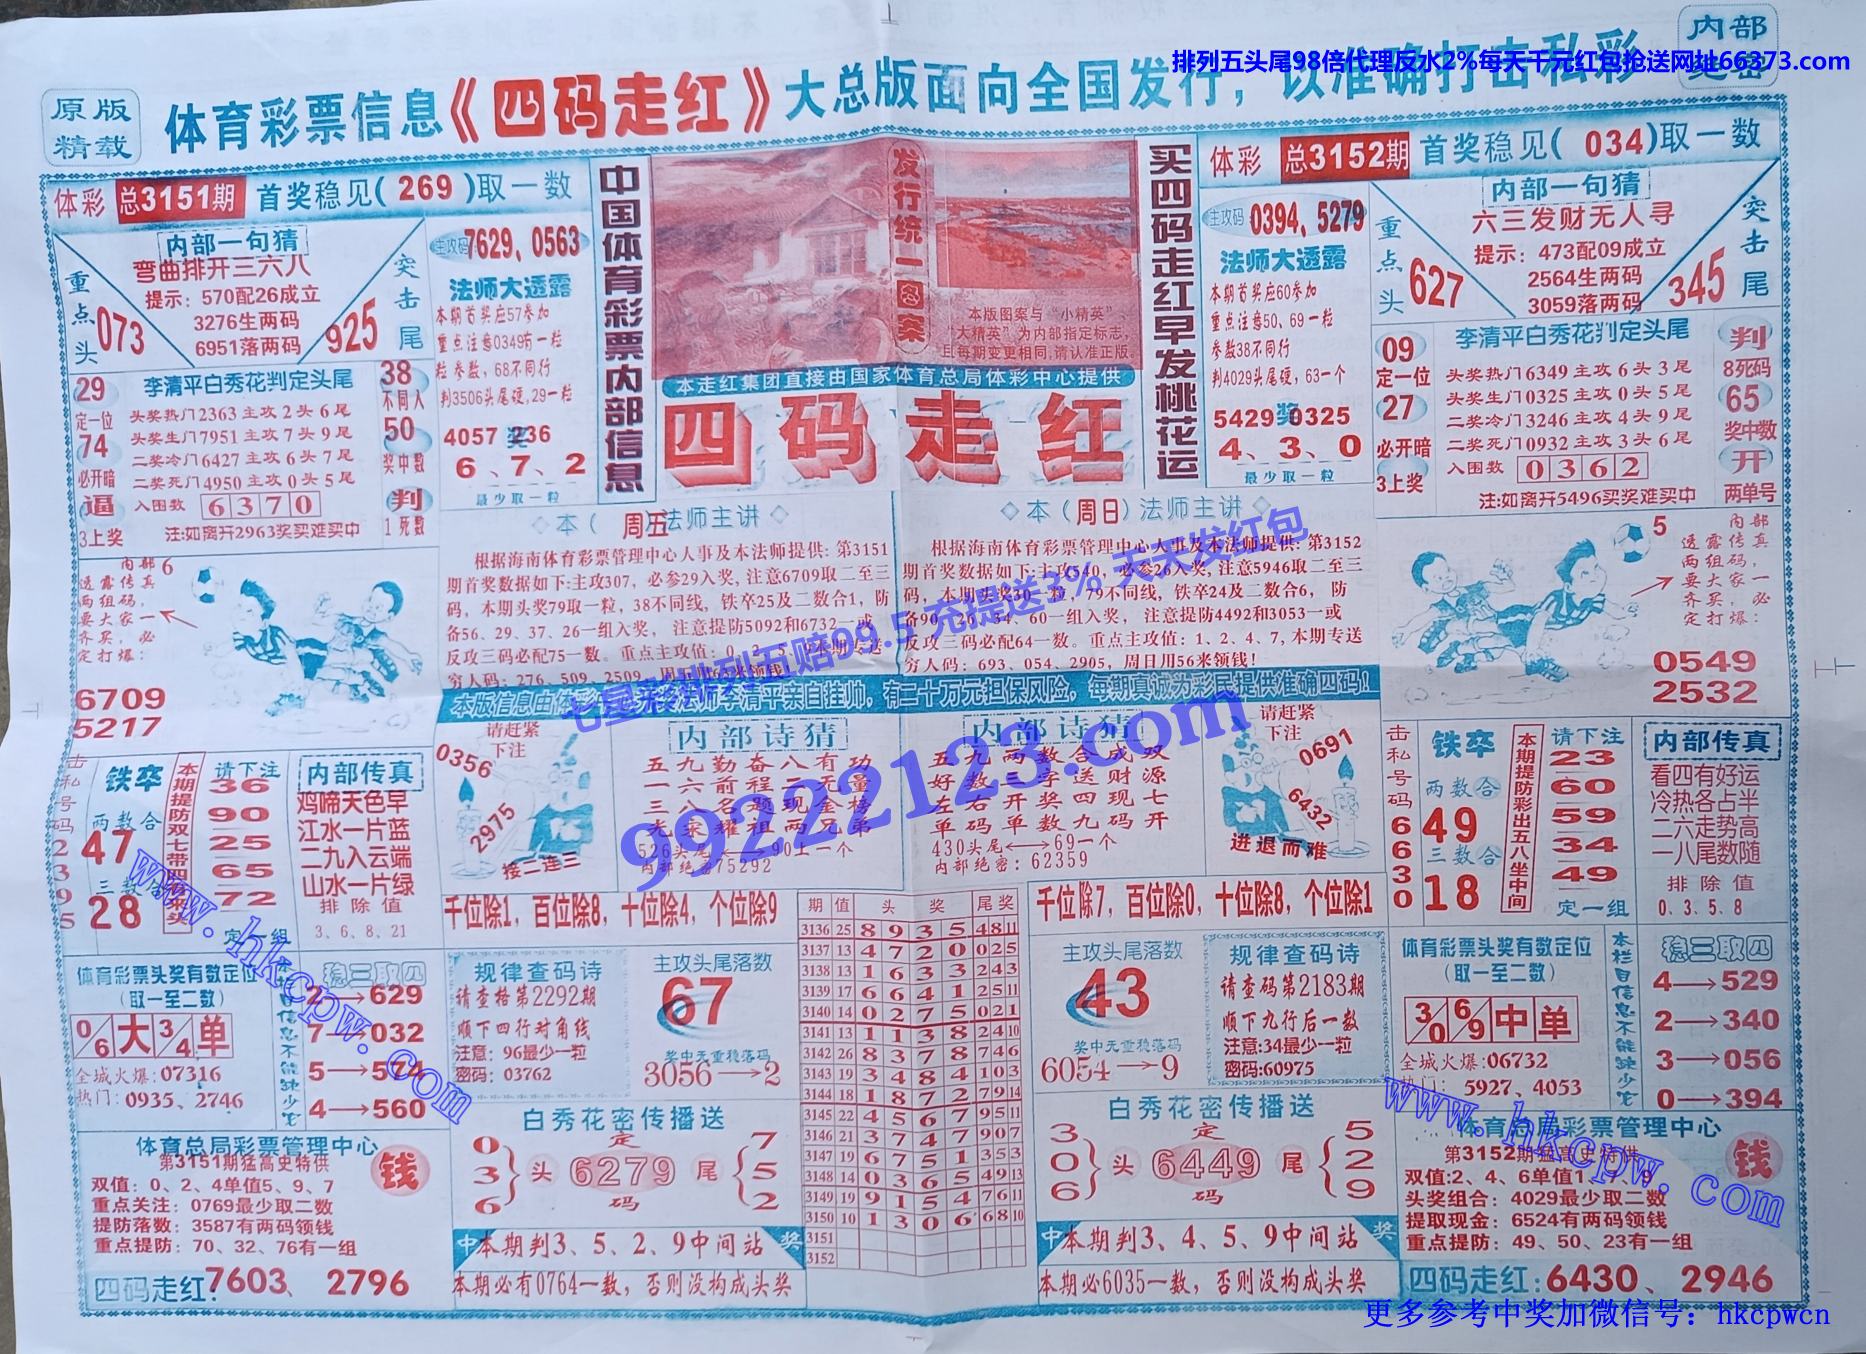 排列五头尾98倍代理反水2%每天千元红包抢送网址66373.com
原版
精载
体育彩票信息《四码走红》大总版面向全国发行，以准确打击私彩
内部
体彩 总3151期 首奖稳见(269)取一数
内部一句猜
弯曲排开三六八
提示：570配26成立
3276生两码
6951落两码
重点头
073
突击尾
925
主攻码 7629, 0563
法师大透露
本期首奖应57参加
重点注意0349防一粒
粒参数，68不同行
判3506头尾硬,29一粒
4057奖236
6、7、2
最少取一粒
29
定一位
74
必开暗
逼
3上奖
李清平白秀花判定头尾
头奖热门2363主攻2头6尾
头奖生门7951主攻7头9尾
二奖冷门6427主攻6头7尾
二奖死门4950主攻0头5尾
入围数 6370
注:如离开2963奖买难买中
38
不同入
50
奖中数
判
1死数
中国体育彩票内部信息
发行统一图案
本版图案与“小精英”、
大精英”为内部指定标志，
且每期变更相同,请认准正版.
本走红集团直接由国家体育总局体彩中心提供
四码走红
买四码走红早发桃花运
体彩 总3152期 首奖稳见(034)取一数
主攻码 0394, 5279
法师大透露
本期首奖应60参加
重点注意50、69一粒
参数38不同行
判4029头尾硬,63一个
5429奖0325
4、3、0
最少取一粒
内部一句猜
六三发财无人寻
提示：473配09成立
2564生两码
3059落两码
重点头
627
突击尾
345
09
定一位
27
必开暗
3上奖
李清平白秀花判定头尾
头奖热门6349主攻6头3尾
头奖生门0325主攻0头5尾
二奖冷门3246主攻4头9尾
二奖死门0932主攻3头6尾
入围数 0362
注:如离开5496买奖难买中
判
8死码
65
奖中数
开
两单号
◇本（周五）法师主讲◇
根据海南体育彩票管理中心人事及本法师提供: 第3151
期首奖数据如下:主攻307，必参29入奖, 注意6709取二至三
码，本期头奖79取一粒，38不同线，铁卒25及二数合1，防
备56、29、37、26一组入奖，注意提防5092和6732一或
反攻三码必配75一数。重点主攻值：0、2、5、9本期专送
穷人码：276、509、2509，周五用63来领钱!
◇本（周日）法师主讲◇
根据海南体育彩票管理中心人事及本法师提供: 第3152
期首奖数据如下:主攻540，必参26入奖, 注意5946取二至三
码，本期头奖30一粒，79不同线，铁卒24及二数合6，防
备90、26、34、60一组入奖，注意提防4492和3053一或
反攻三码必配64一数。重点主攻值：1、2、4、7,本期专送
穷人码：693、054、2905，周日用56米领钱!
内部 6
透露传真
两组码，
要大家一
齐买，必
定打爆：
6709
5217
5 内部
透露传真
两组码，
要大家一
齐买，必
定打爆：
0549
2532
七星彩排列五赔99.5 充提送3% 天天发红包
99222123.com
法师李清平亲自挂帅，有二十万元担保风险，每期真诚为彩民提供准确四码！
击私号码2395
铁卒
两数合
47
三数合
28
本期提防双七带四有来头
请下注
36
90
25
65
72
定一组
内部传真
鸡啼天色早
江水一片蓝
二九入云端
山水一片绿
排除值
3、6、8、21
请赶紧
下注
0356
2975
接二连三
内部诗猜
五九勤奋八有功
一六前程二无量
三八名题现金榜
光荣耀祖两兄弟
526头尾←→90上一个
内部绝密75292
内部诗猜
五九两数合成双
好数三字送财源
左右开奖四现七
单码单数九码开
430头尾←→69一个
内部绝密：62359
请赶紧
下注
0691
6432
进退而难
击私号码6630
铁卒
两数合
49
三数合
18
本期提防彩出五八坐中间
请下注
23
60
59
34
49
定一组
内部传真
看四有好运
冷热各占半
二六走势高
一八尾数随
排除值
0、3、5、8
千位除1，百位除8，十位除4，个位除9
千位除7，百位除0，十位除8，个位除1
期 值 头奖 尾奖
3136 25 8935 48 11
3137 13 4720 025
3138 13 1633 243
3139 17 6641 25 11
3140 14 0275 021
3141 13 1138 24 10
3142 26 8378 746
3143 19 3484 103
3144 18 1872 79 14
3145 22 4567 95 11
3146 21 3747 907
3147 19 6751 353
3148 14 0365 49 13
3149 19 9154 76 11
3150 10 1306 68 10
3151
3152
体育彩票头奖有数定位
（取一至二数）
0/6 大 3/4 单
全城火爆:07316
热门: 0935、2746
本栏目信息不能缺少它
稳三取四
2→629
7→032
5→574
4→560
规律查码诗
请查格第2292期
顺下四行对角线
注意：96最少一粒
密码：03762
主攻头尾落数
67
奖中无重稳落码
3056→2
白秀花密传播送
0
3
6
头
定
6279
码
尾
7
5
2
主攻头尾落数
43
奖中无重稳落码
6054→9
规律查码诗
请查码第2183期
顺下九行后一数
注意:34最少一粒
密码:60975
白秀花密传播送
3
0
6
头
定
6449
码
尾
5
2
9
体育彩票头奖有数定位
（取一至二数）
3/0 6/9 中 单
全城火爆:06732
热门: 5927、4053
本栏目信息不能缺少它
稳三取四
4→529
2→340
3→056
0→394
体育总局彩票管理中心
第3151期猛高史特供
双值：0、2、4单值5、9、7
重点关注：0769最少取二数
提防落数：3587有两码领钱
重点提防：70、32、76有一组
钱
四码走红:7603、2796
中 本期判3、5、2、9中间站 奖
本期必有0764一数，否则没构成头奖
中 本期判3、4、5、9中间站 奖
本期必6035一数，否则没构成头奖
体育总局彩票管理中心
第3152期猛高史特供
双值:2、4、6单值1、7、9
头奖组合：4029最少取二数
提取现金：6524有两码领钱
重点提防：49、50、23有一组
钱
四码走红:6430、2946
www.hkcpw.com
www.hkcpw.com
更多参考中奖加微信号：hkcpwcn